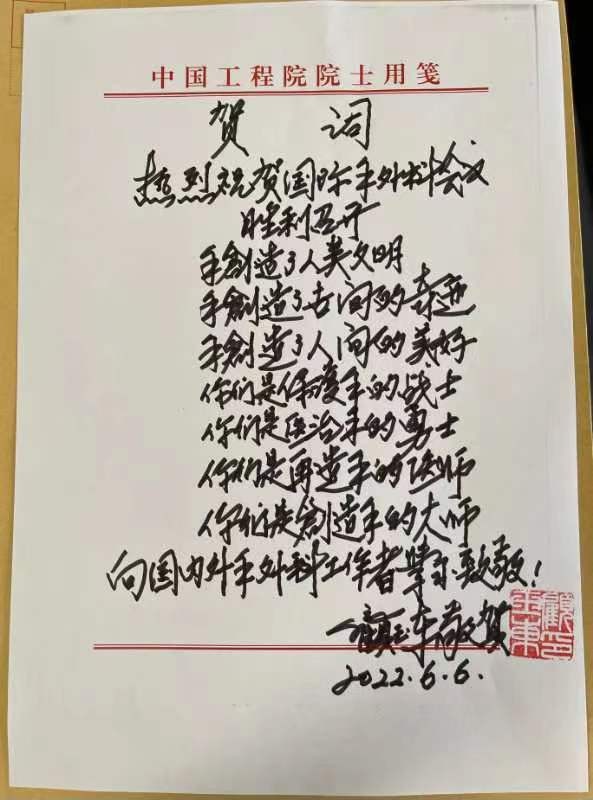 中国工程院院士用笺
贺 词
热烈祝贺国际手外科会议
胜利召开
手創造了人类文明
手創造了世间的奇迹
手創造了人间的美好
你们是保護手的战士
你们是医治手的勇士
你们是再造手的医师
你们是創造手的大师
向国内外手外科工作者致敬！
顧玉东敬贺
顧玉東印
2022.6.6.